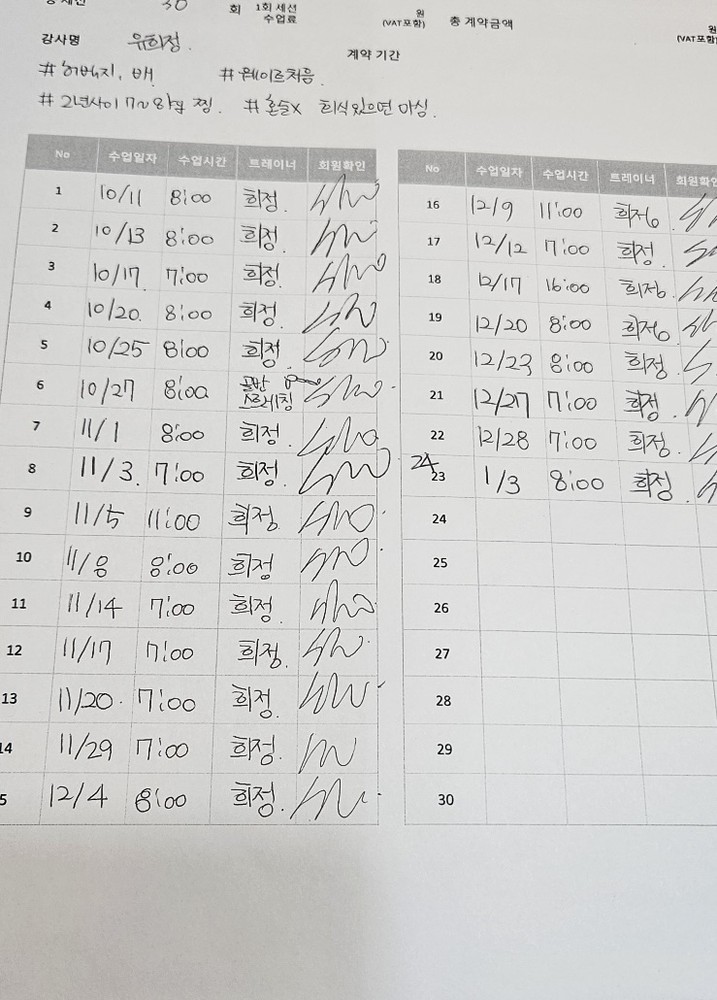 30 회 1회 세션 수업료 원 (VAT포함) 총 계약금액 원 (VAT포함)
강사명 유희정. 계약 기간
# 허벅지, 배 # 웨이트처음.
# 2년사이 7~8키로 찜. # 혼술X 회식있으면 마심.
No 수업일자 수업시간 트레이너 회원확인
1 10/11 8:00 희정.
2 10/13 8:00 희정.
3 10/17. 7:00 희정.
4 10/20. 8:00 희정.
5 10/25 8:00 희정.
6 10/27 8:00 골반 스트레칭
7 11/1 8:00 희정.
8 11/3. 7:00 희정.
9 11/5 11:00 희정.
10 11/8 8:00 희정
11 11/14 7:00 희정
12 11/17 7:00 희정.
13 11/20. 7:00 희정.
14 11/29 7:00 희정.
5 12/4 8:00 희정.
No 수업일자 수업시간 트레이너 회원확인
16 12/9 11:00 희정
17 12/12 7:00 희정.
18 12/17 16:00 희정
19 12/20 8:00 희정.
20 12/23 8:00 희정.
21 12/27 7:00 희정.
22 12/28 7:00 희정.
24
23 1/3 8:00 희정.
24
25
26
27
28
29
30